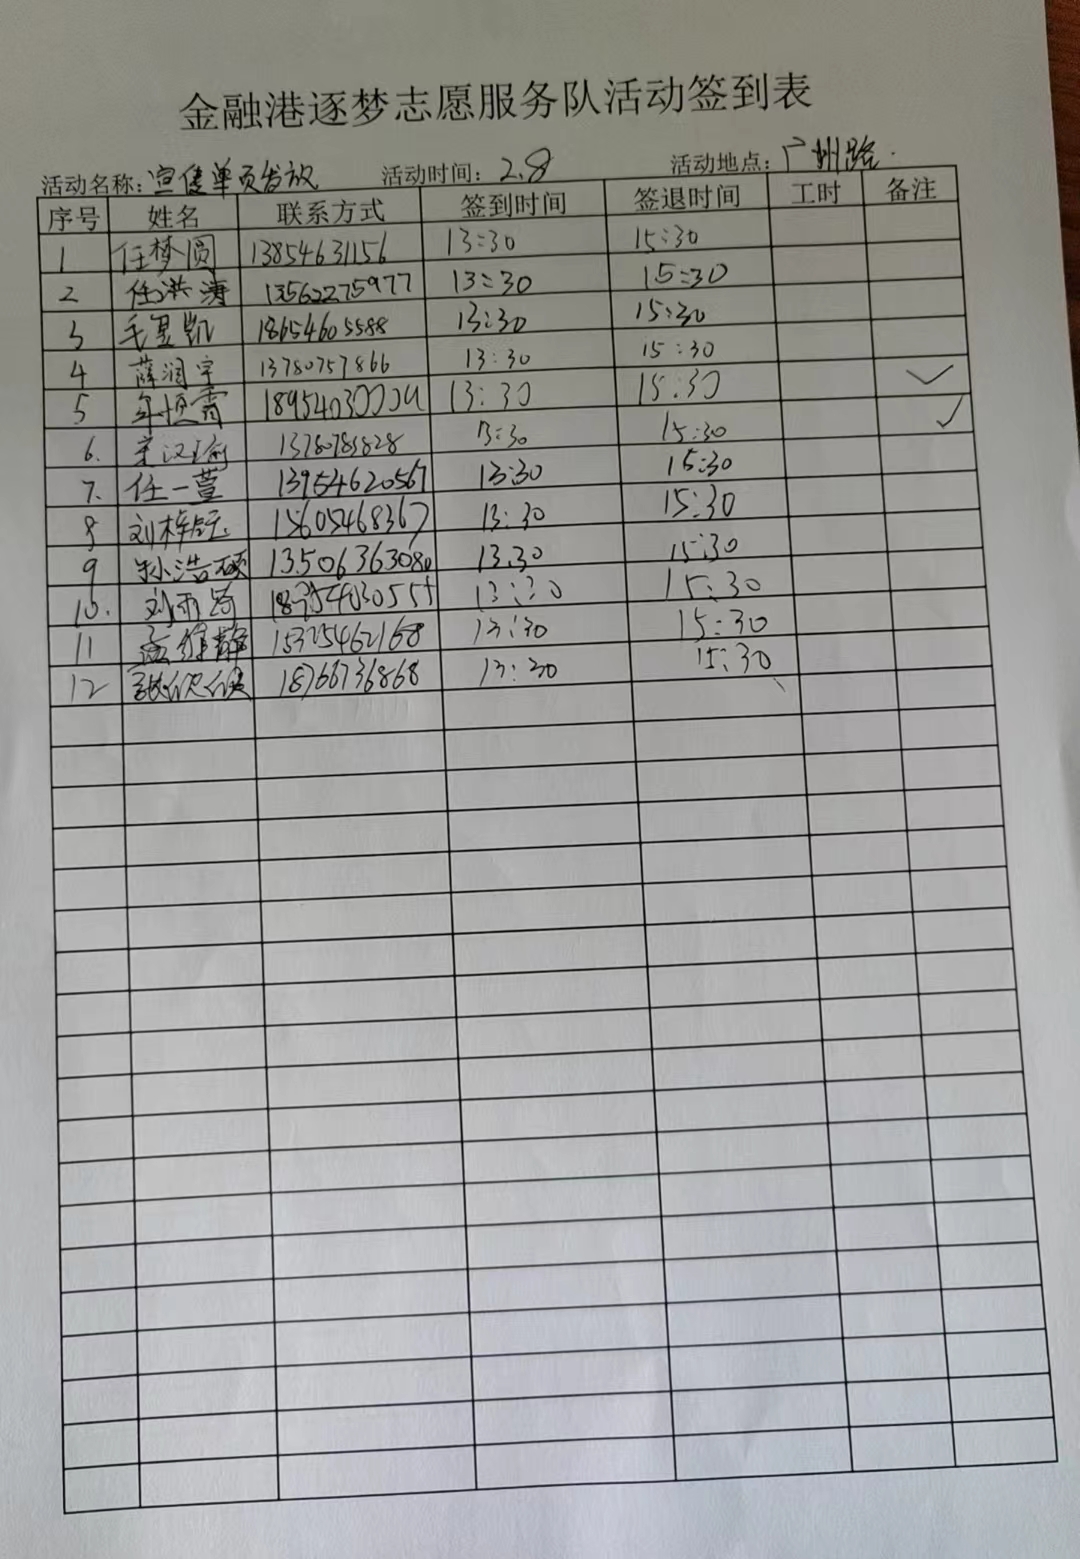 金融港逐梦志愿服务队活动签到表
活动名称:宣传单页发放 活动时间:2.8 活动地点:广州路.
序号 姓名 联系方式 签到时间 签退时间 工时 备注
1 任梦圆 13854631156 13:30 15:30
2 任洪涛 13562275977 13:30 15:30
3 毛昱凯 18654605588 13:30 15:30
4 薛润宇 13780757866 13:30 15:30 ✓
5 恒霄 13:30 15:30 ✓
6. 汉瑜 13780783828 13:30 15:30
7. 任一萱 13954620567 13:30 15:30
8 刘梓钰 15605468367 13:30 15:30
9 孙浩硕 13506363080 13.30 15:30
10. 刘雨 13:30 15:30
11 孟维静 15325462168 13:30 15:30
12 张欣 18766736868 13:30 15:30